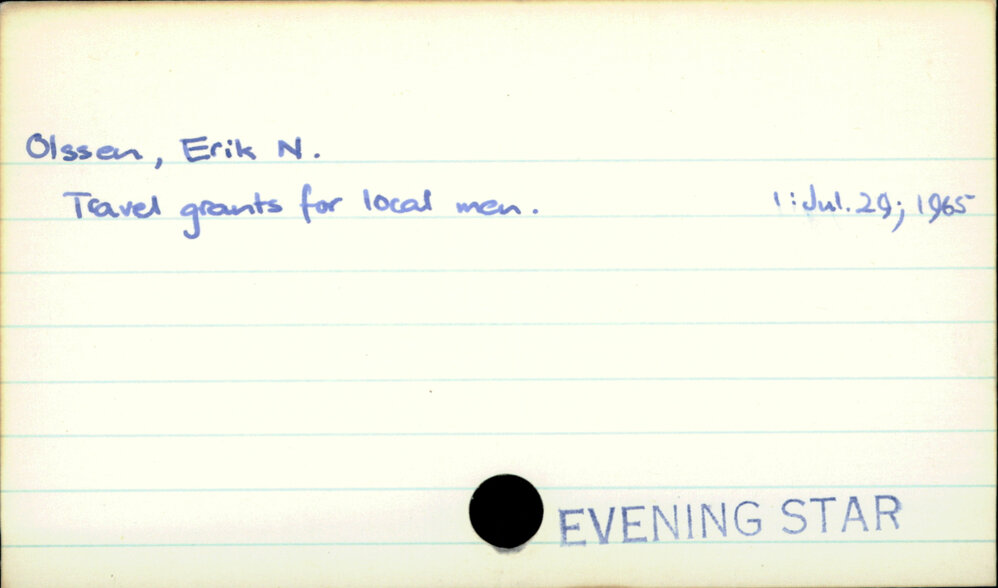 Olssen, Erik N.
Travel grants for local men. 1: Jul. 29; 1965
EVENING STAR